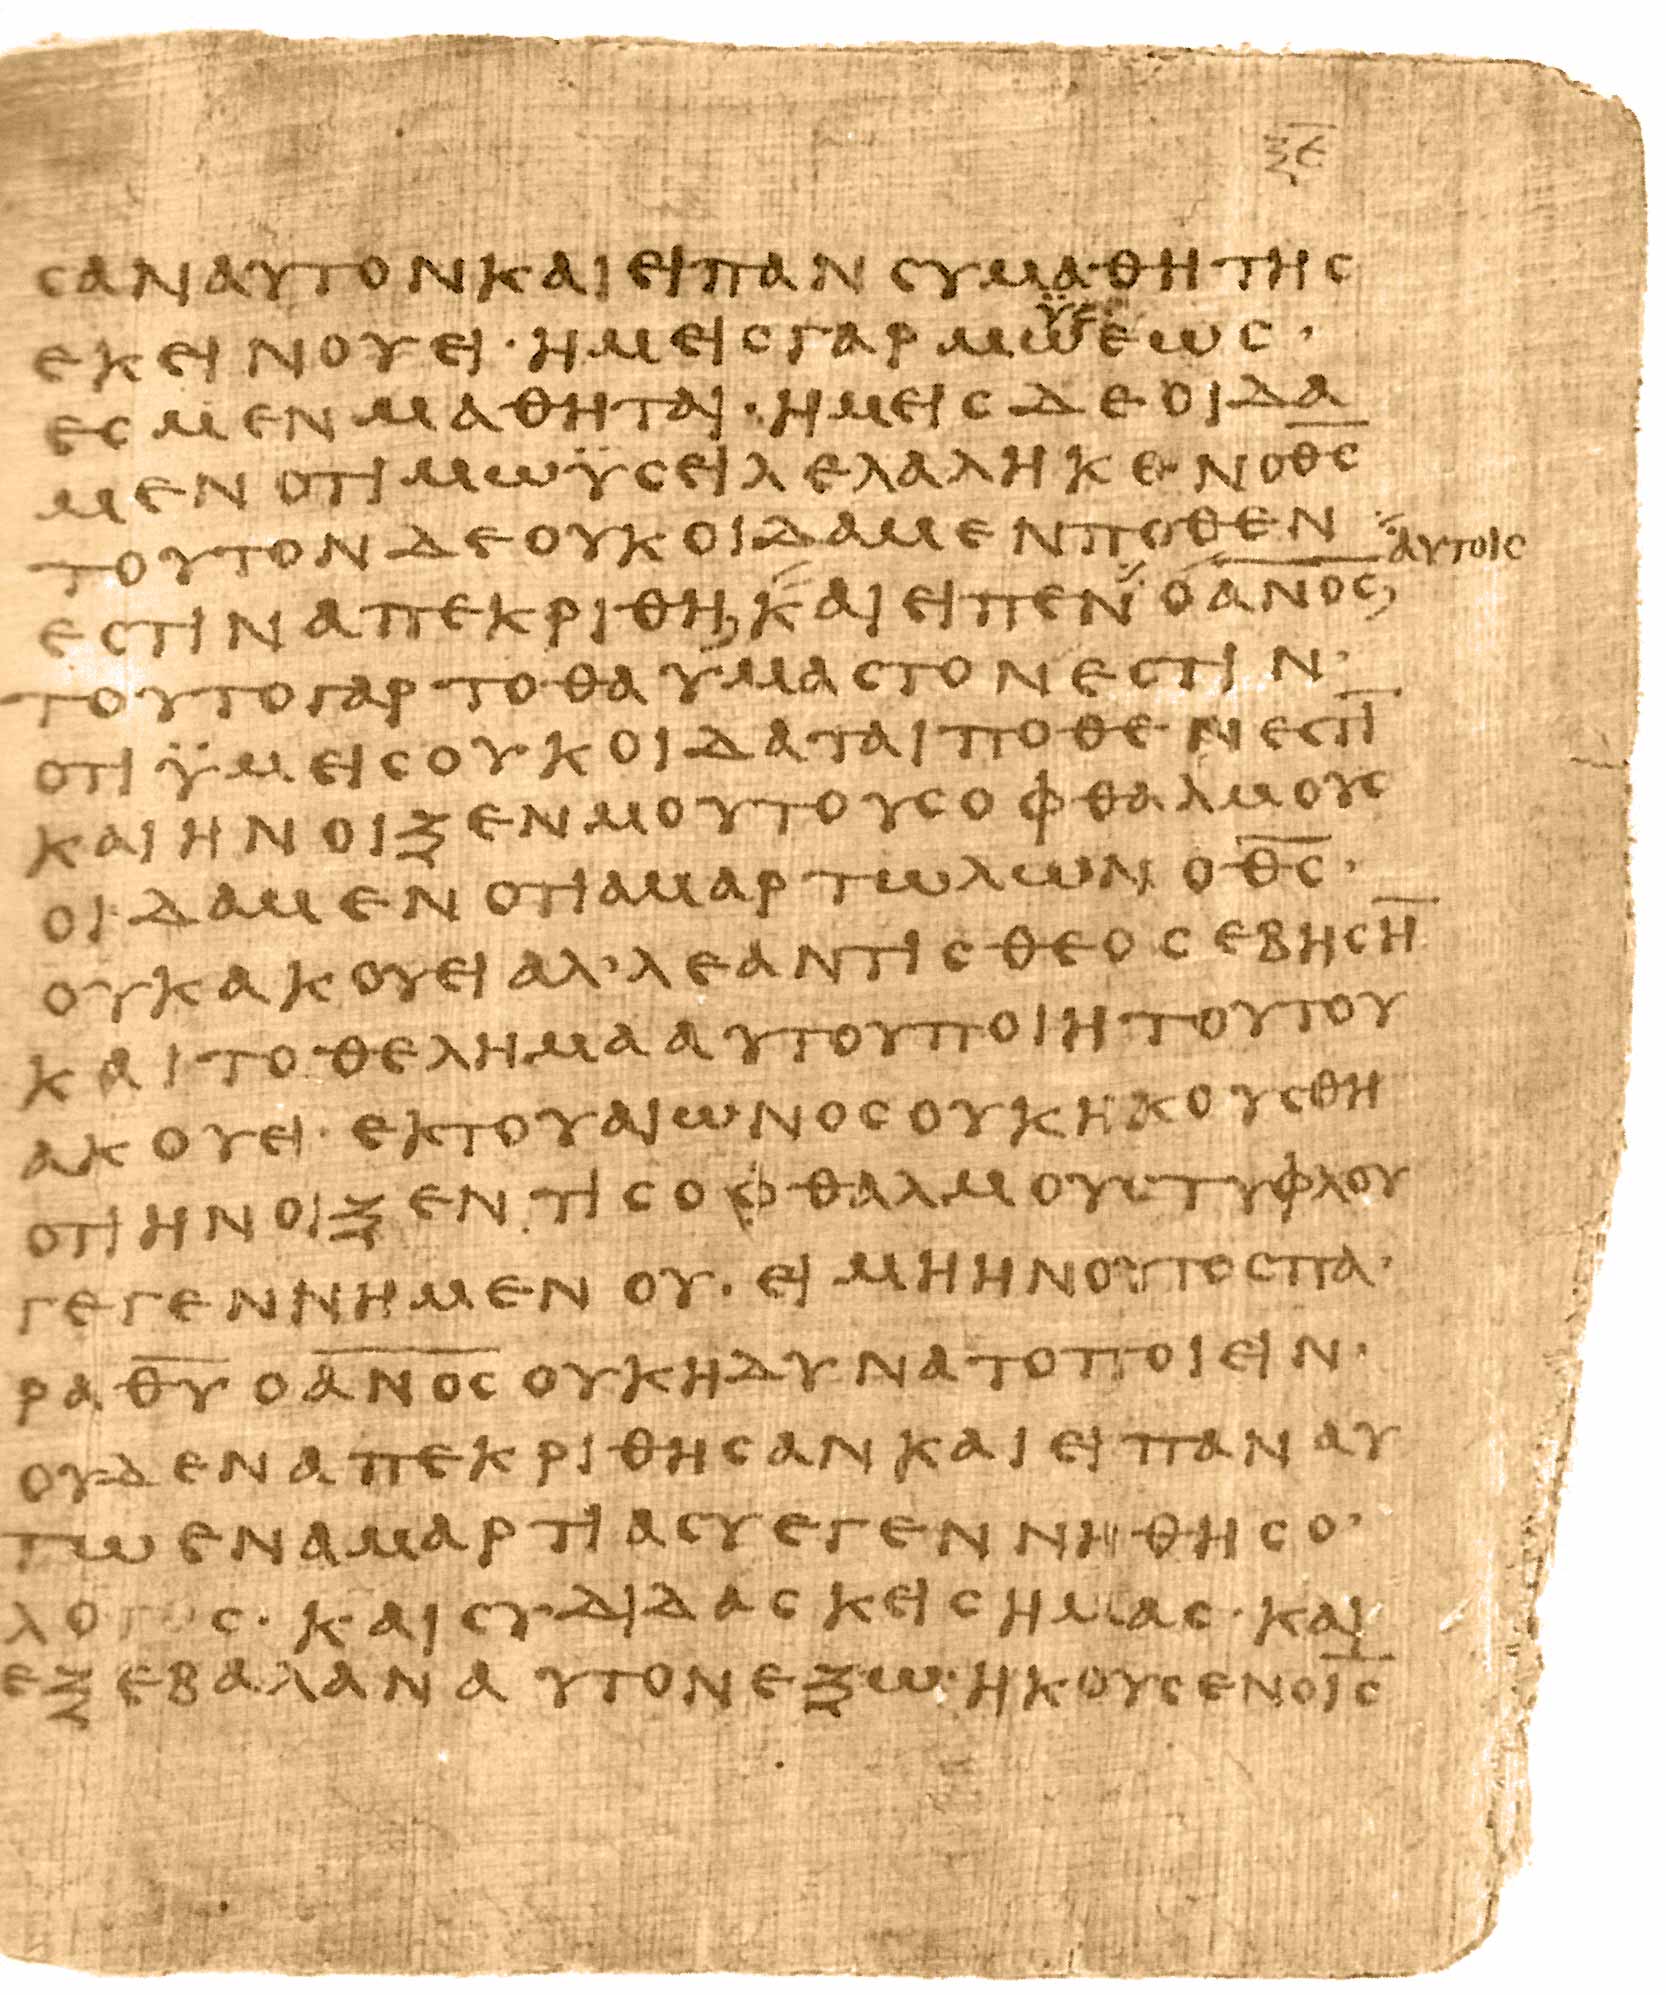 ξε
ϲαναυτονκαιειπαν ϲυμαθητηϲ
εκεινουει· ημειϲγαρμωεωϲ·
ϋϲ
εϲμενμαθηται· ημειϲδεοιδα
μενοτιμωϋϲειλελαληκενοθ̅ϲ̅
τουτονδεουκοιδαμενποθεν
εϲτιναπεκριθη καιειπεν οα̅ν̅ο̅ϲ̅ αυτοιϲ
τουτογαρτοθαυμαϲτονεϲτιν·
οτιϋμειϲουκοιδαταιποθενεϲτι̅
καιηνοιξενμουτουϲοφθαλμουϲ
οιδαμενοτιαμαρτωλωνοθ̅ϲ̅·
ουκακουειαλ’λεαντιϲθεοϲεβηϲη̅
καιτοθελημααυτουποιητουτου
ακουει· εκτουαιωνοϲουκηκουϲθη
οτιηνοιξεντιϲοφθαλμουϲτυφλου
γεγεννημενου· ειμηηνουτοϲπα·
ραθ̅υ̅οα̅ν̅ο̅ϲ̅ουκηδυνατοποιειν·
ουδεναπεκριθηϲανκαιειπαναυ
τωεναμαρτιαϲυεγεννηθηϲο·
λογοϲ· καιϲυδιδαϲκειϲημαϲ· και
εξεβαλαναυτονεξω· ηκουϲενοι̅ϲ̅